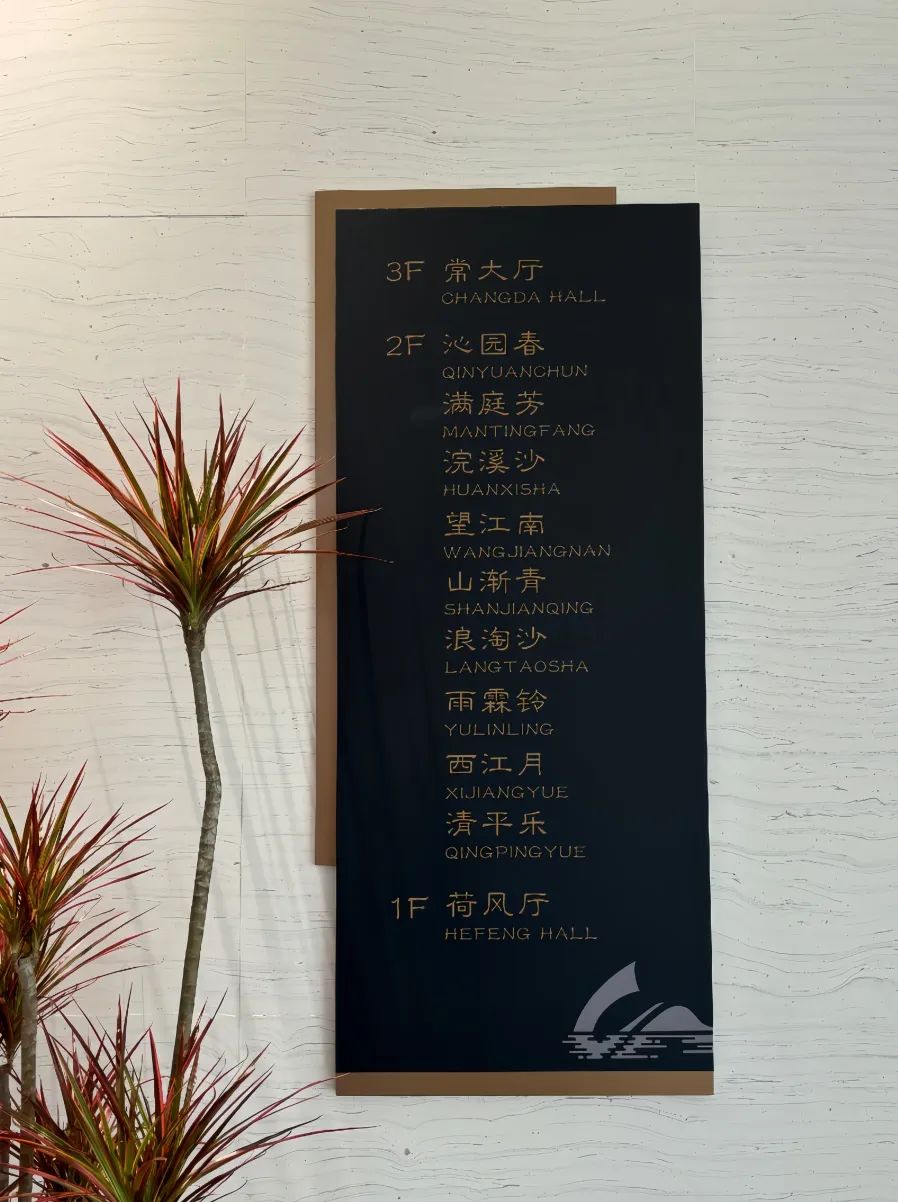 3F 常大厅
CHANGDA HALL
2F 沁园春
QINYUANCHUN
满庭芳
MANTINGFANG
浣溪沙
HUANXISHA
望江南
WANGJIANGNAN
山渐青
SHANJIANQING
浪淘沙
LANGTAOSHA
雨霖铃
YULINLING
西江月
XIJIANGYUE
清平乐
QINGPINGYUE
1F 荷风厅
HEFENG HALL